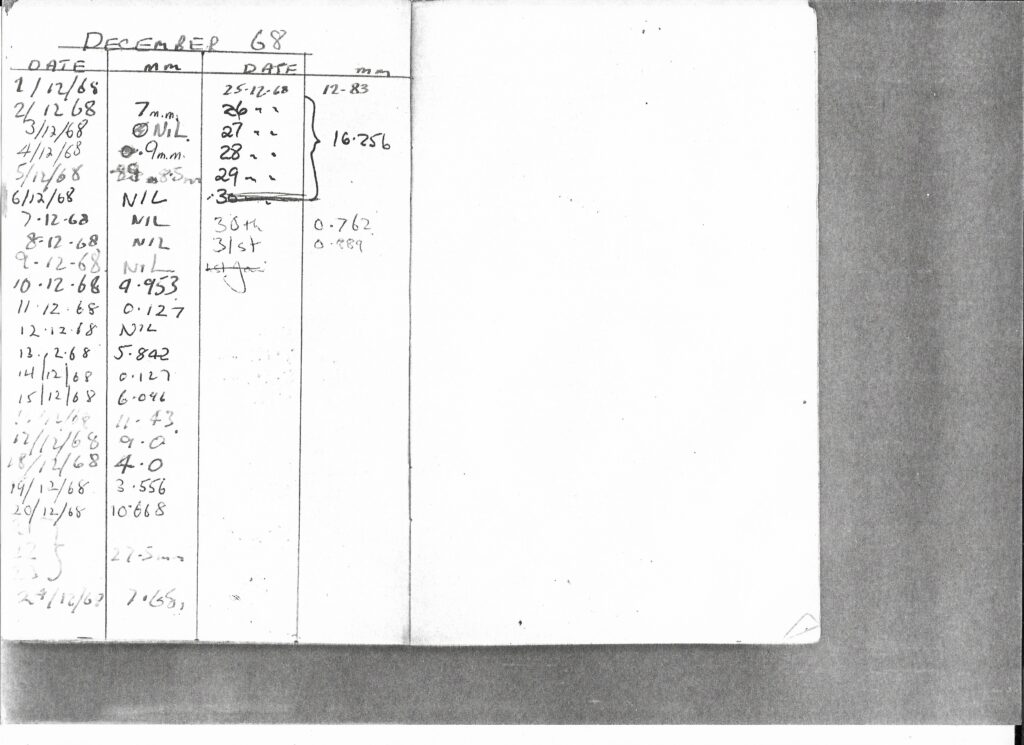 DECEMBER 68
DATE mm DATE mm
1/12/68 25-12-68 12-83
2/12 68 7 m.m. 26 " "
3/12/68 NIL 27 " " 16.256
4/12/68 .9 m.m. 28 " "
5/12/68 29 " "
6/12/68 NIL 30 "
7.12.68 NIL 30th 0.762
8-12.68 NIL 31st
9-12-68 NIL 1st Jan
10.12.68 9.953
11.12.68 0.127
12.12.68 NIL
13. 2.68 5.842
14/12/68 0.127
15/12/68 6.096
11.43
17/12/68 9.0
18/12/68 4.0
19/12/68 3.556
20/12/68 10.668
22 27.5 mm
23
24/12/68 7.68